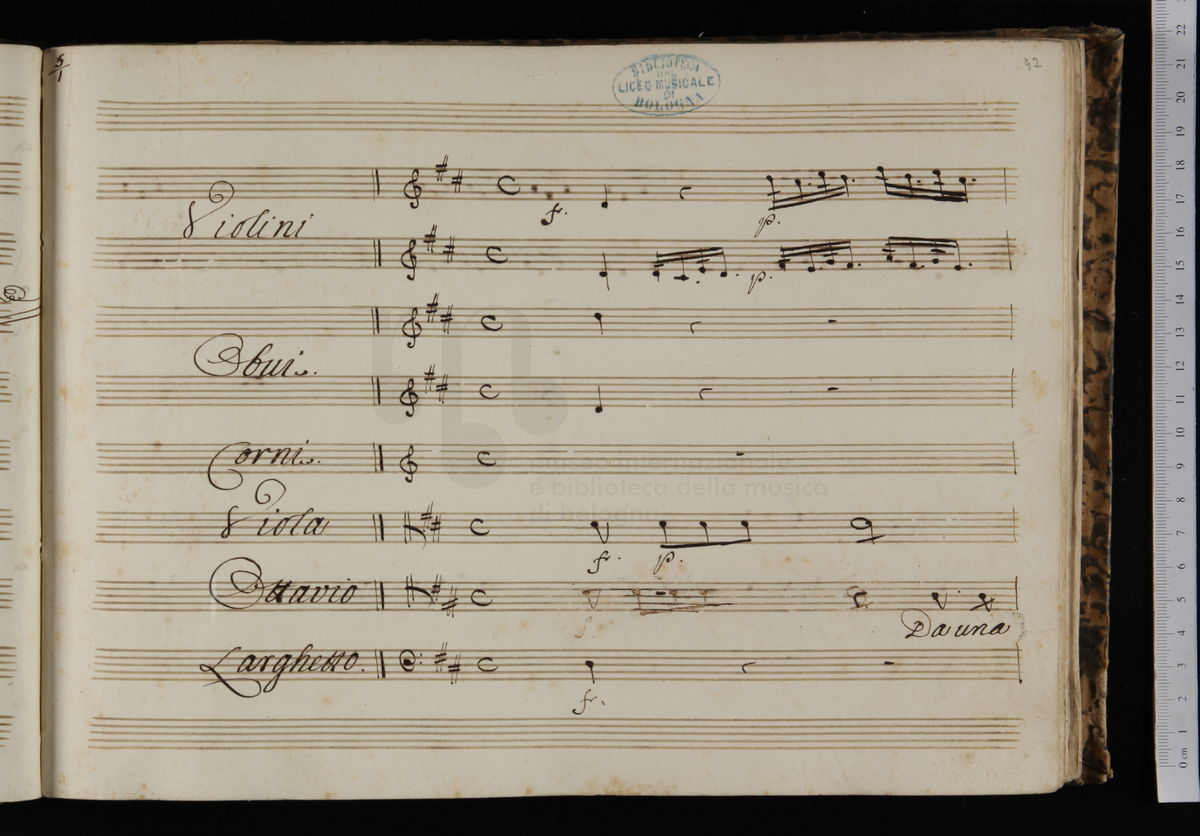 5/1
BIBLIOTECA
DEL
LICEO MUSICALE
DI
BOLOGNA
42
Violini
f. p.
p.
Obui.
Corni.
e biblioteca della musica
di bologna
Viola
f. p.
Ottavio
Da una
Larghetto.
f.
22
21
20
19
18
17
16
15
14
13
12
11
10
9
8
7
6
5
4
3
2
1
0 cm